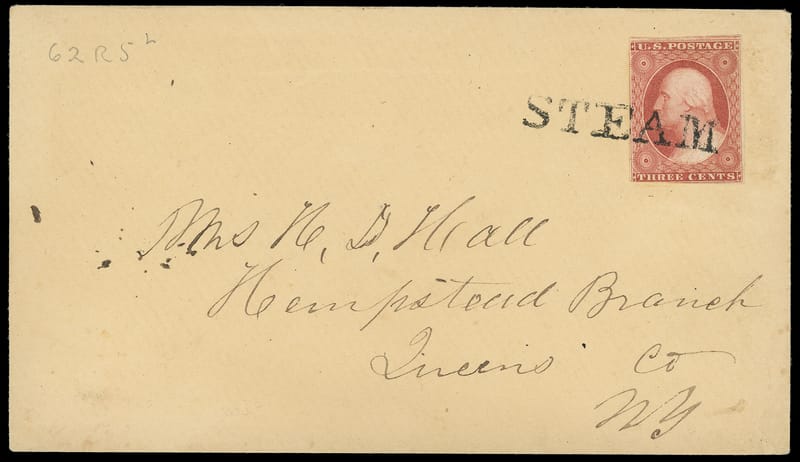 62R5L
U.S. POSTAGE
STEAM
THREE CENTS
Mrs H. D. Hall
Hempstead Branch
Queens Co
NY